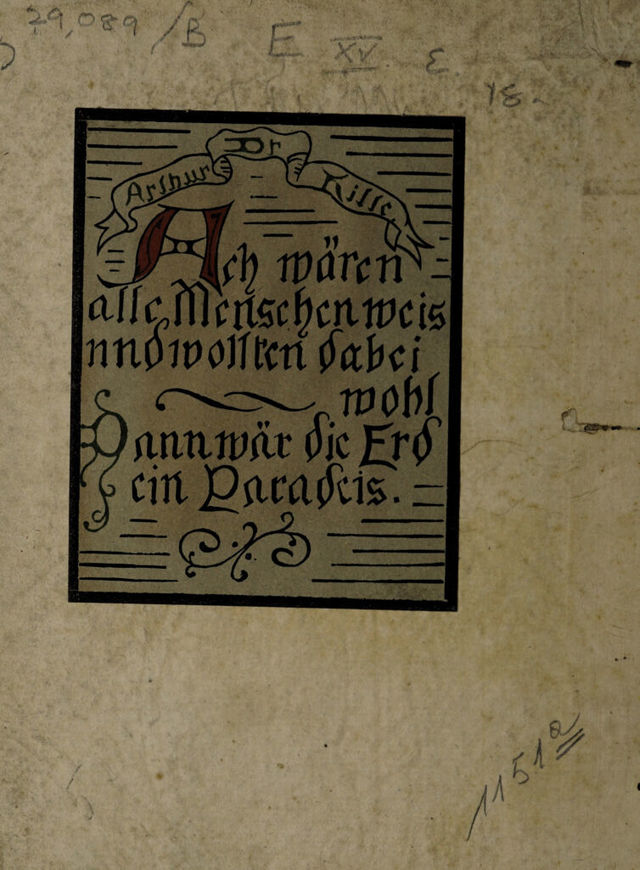 29,089 /B E XV. ε.
18-
Arthur Dr Kille
Ach wären
alle Menschen weis
und wollten dabei
wohl
Dann wär die Erd
ein Paradeis.
1151a